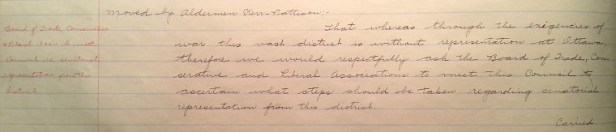 Moved by Aldermen Kerr-Pattison:-
That whereas through the exigencies of
war this vast district is without representation at Ottawa
therefore we would respectfully ask the Board of Trade, Con
servative and Liberal Associations to meet this Council to
ascertain what steps should be taken regarding senatorial
representation from this district.
Carried
Board of Trade, Conservative
& Liberal Assn's to meet
Council re senatorial
representation from the
district